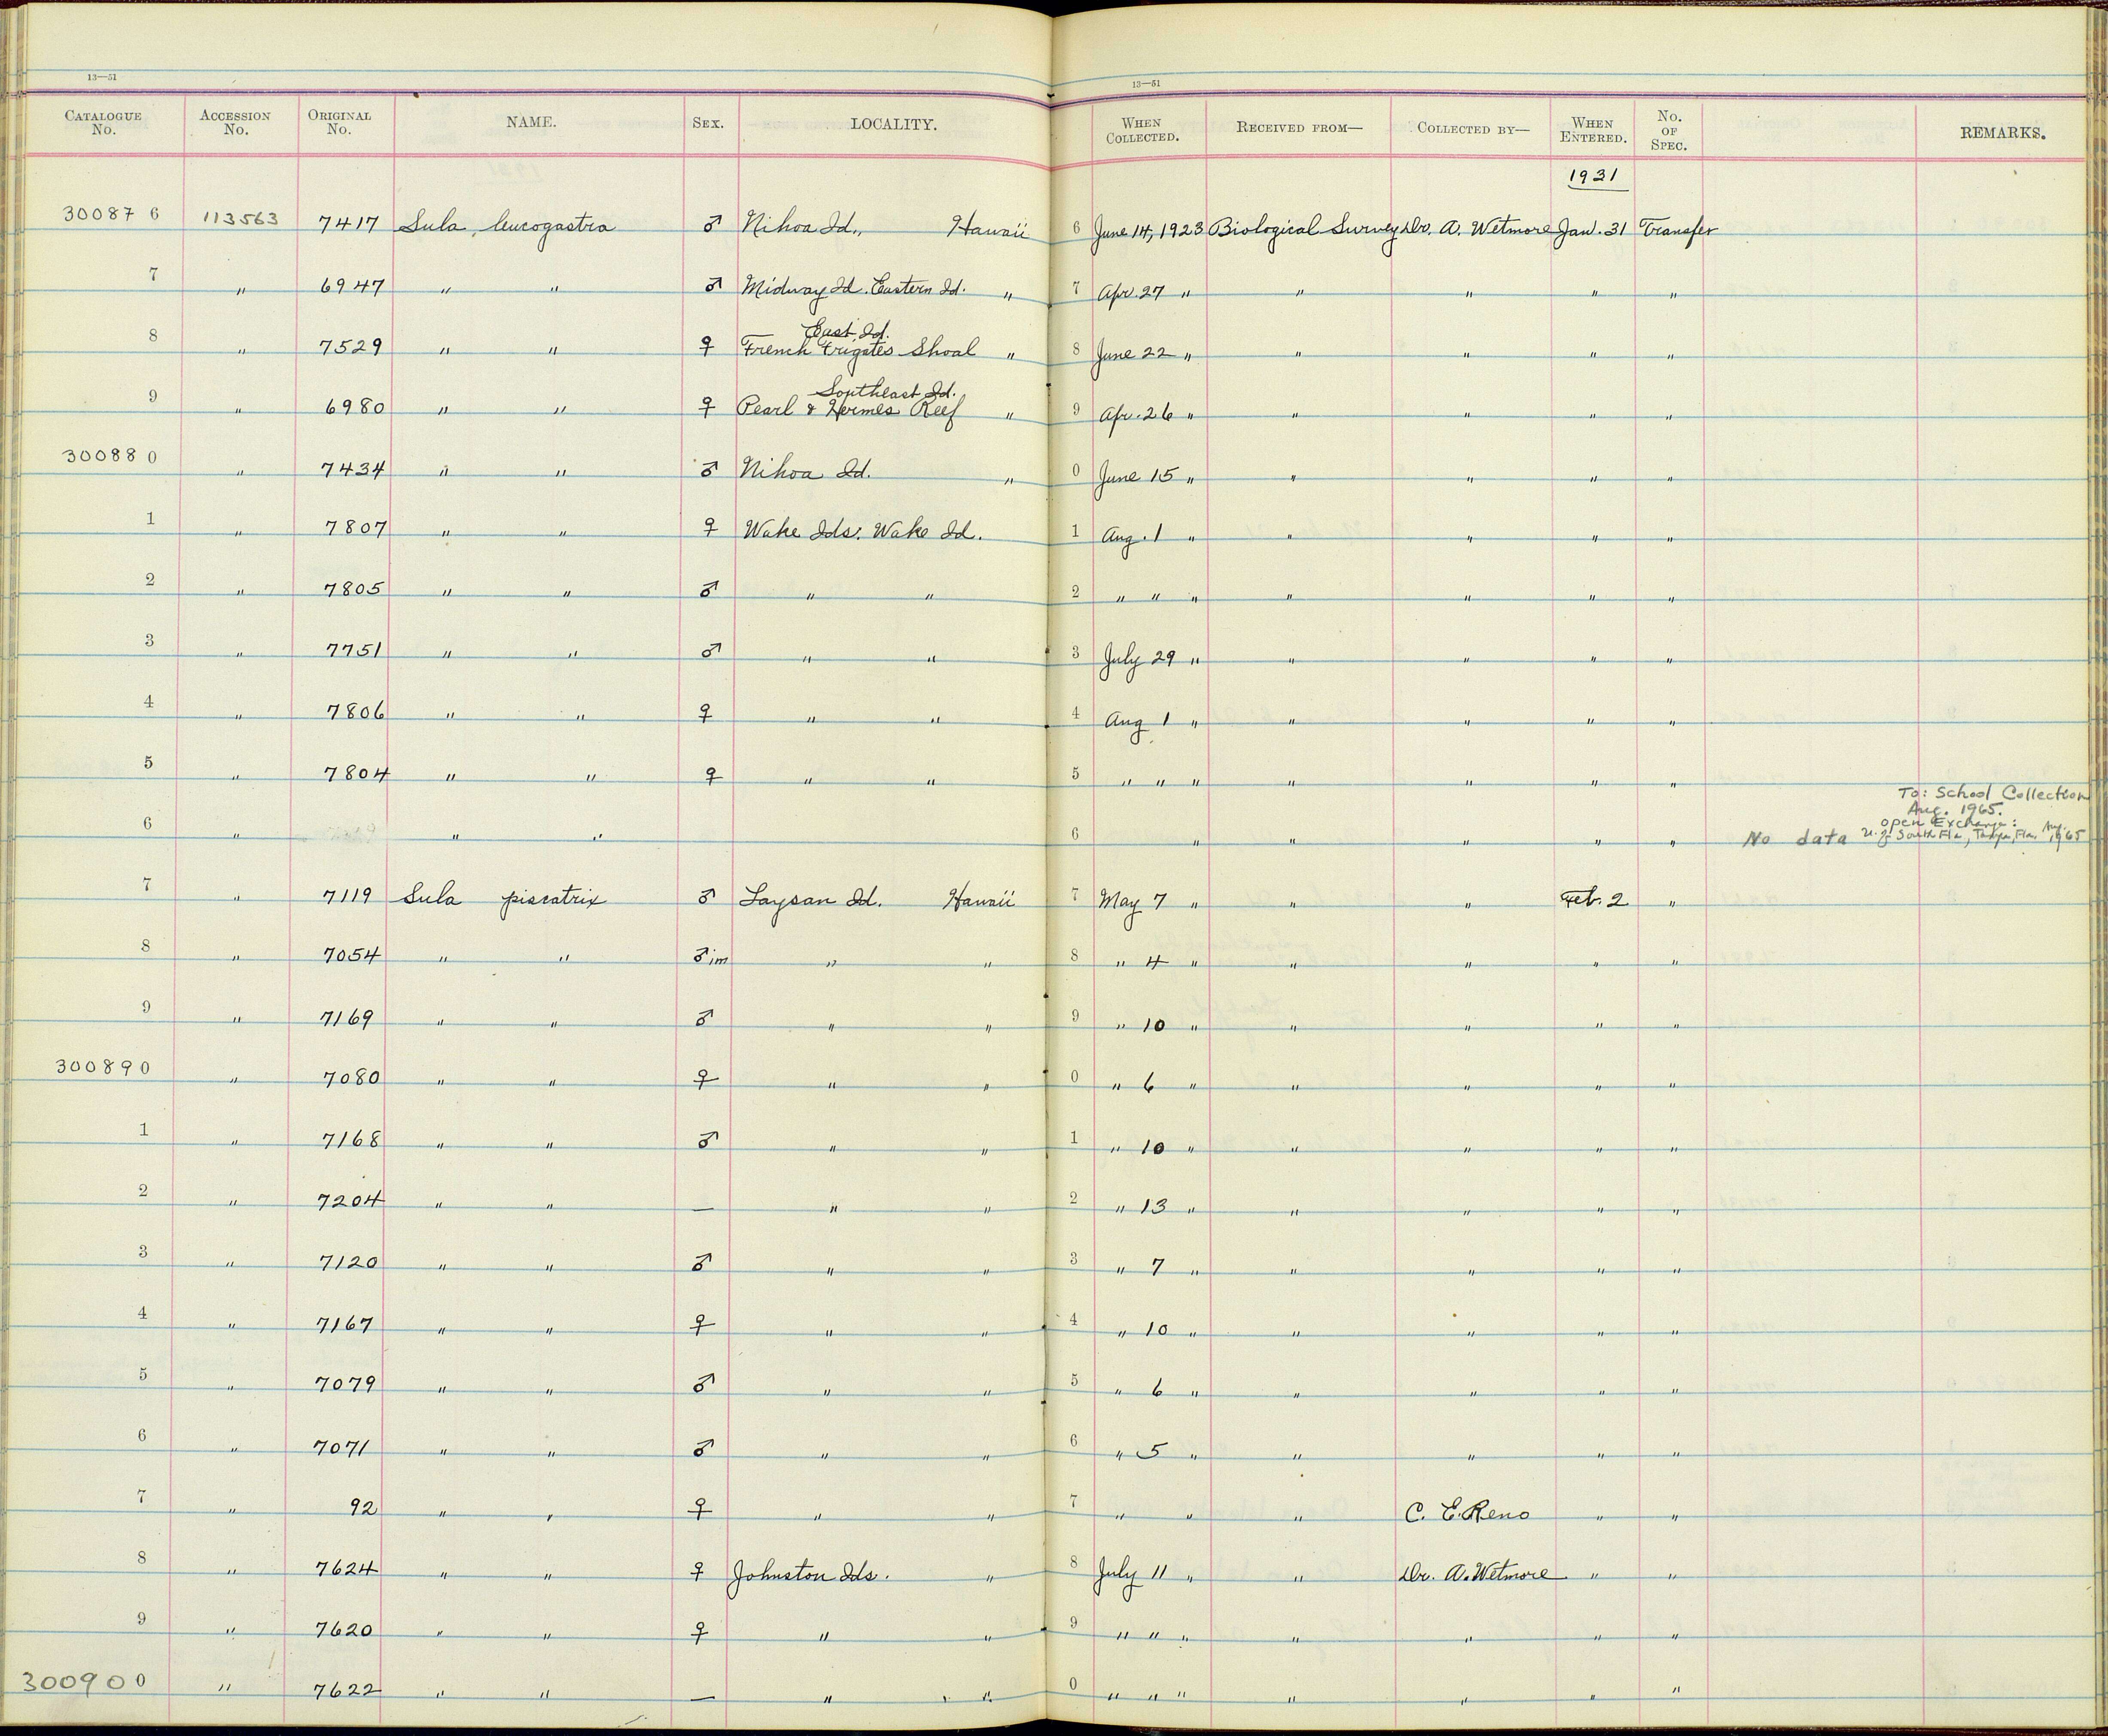 13—51
13—51
CATALOGUE No. ACCESSION No. ORIGINAL No. NAME. SEX. LOCALITY. WHEN COLLECTED. RECEIVED FROM— COLLECTED BY— WHEN ENTERED. No. OF SPEC. REMARKS.
1931
300876 113563 7417 Sula leucogastra ♂ Nihoa Id., Hawaii 6 June 14, 1923 Biological Survey Dr. A. Wetmore Jan. 31 Transfer
7 " 6947 " " ♂ Midway Id. Eastern Id. " 7 Apr. 27 " " " " "
East Id.
8 " 7529 " " ♀ French Frigates Shoal " 8 June 22 " " " " "
Southeast Id.
9 " 6980 " " ♀ Pearl & Hermes Reef " 9 Apr. 26 " " " " "
300880 " 7434 " " ♂ Nihoa Id. " 0 June 15 " " " " "
1 " 7807 " " ♀ Wake Ids. Wake Id. 1 Aug. 1 " " " " "
2 " 7805 " " ♂ " " 2 " " " " " " "
3 " 7751 " " ♂ " " 3 July 29 " " " " "
4 " 7806 " " ♀ " " 4 Aug 1 " " " " "
5 " 7804 " " ♀ " " 5 " " " " " " "
To: School Collection
Aug. 1965.
open Exchange:
6 " " " 6 " " " " " No data U. of South Fla., Tampa, Fla. Aug. 1965
7 " 7119 Sula piscatrix ♂ Laysan Id. Hawaii 7 May 7 " " " Feb. 2 "
8 " 7054 " " ♂ im " " 8 " 4 " " " " "
9 " 7169 " " ♂ " " 9 " 10 " " " " "
300890 " 7080 " " ♀ " " 0 " 6 " " " " "
1 " 7168 " " ♂ " " 1 " 10 " " " " "
2 " 7204 " " — " " 2 " 13 " " " " "
3 " 7120 " " ♂ " " 3 " 7 " " " " "
4 " 7167 " " ♀ " " 4 " 10 " " " " "
5 " 7079 " " ♂ " " 5 " 6 " " " " "
6 " 7071 " " ♂ " " 6 " 5 " " " " "
7 " 92 " " ♀ " " 7 " " " C. E. Reno " "
8 " 7624 " " ♀ Johnston Ids. " 8 July 11 " " Dr. A. Wetmore " "
9 " 7620 " " ♀ " " 9 " " " " " " "
300900 " 7622 " " — " " 0 " " " " " " "